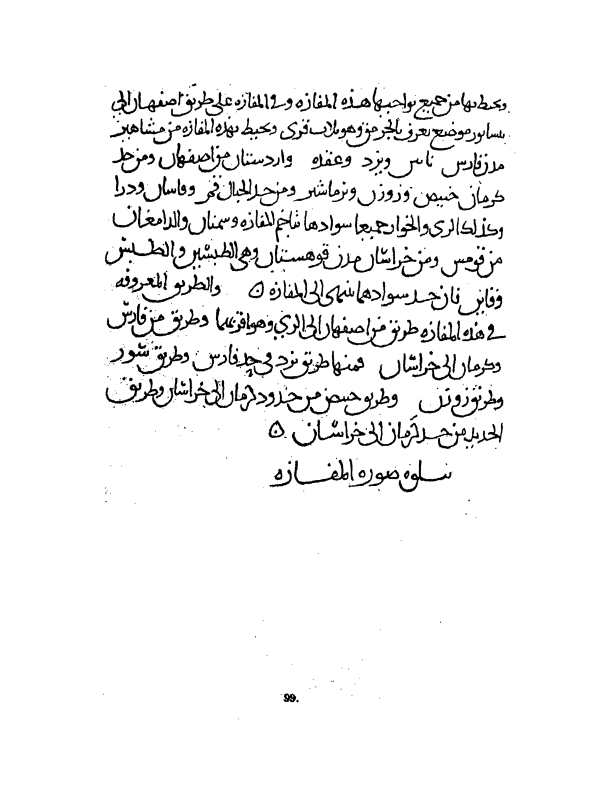 ويحيط بها من جميع نواحيها هذه المفازه وفي المفازه على طريق اصفهان الى
نيسابور موضع يعرف بالجرمق وهو ثلاث قرى ويحيط بهذه المفازه من مشاهير
مدن فارس نايين ويزد وعقده واردستان من اصفهان ومن حد
كرمان خبيص وزوزن ونرماشير ومن حد الجبال قم وقاسان ودزا
وكذلك الري والخوار جميعا سوادها يتاخم المفازه وسمنان والدامغان
من قومس ومن خراسان مدن قوهستان وهي الطبسين والطبس
وقاين فان حد سوادها ينتهى الى المفازه ٥ والطريق المعروفه
في هذه المفازه طريق من اصفهان الى الري وهو اقربها وطريق من فارس
وكرمان الى خراسان فمنها طريق يزد في حد فارس وطريق شور
وطريق زوزن وطريق خبيص من حدود كرمان الى خراسان وطريق
الجديد من حد كرمان الى خراسان ٥
يتلوه صوره المفازه
99.